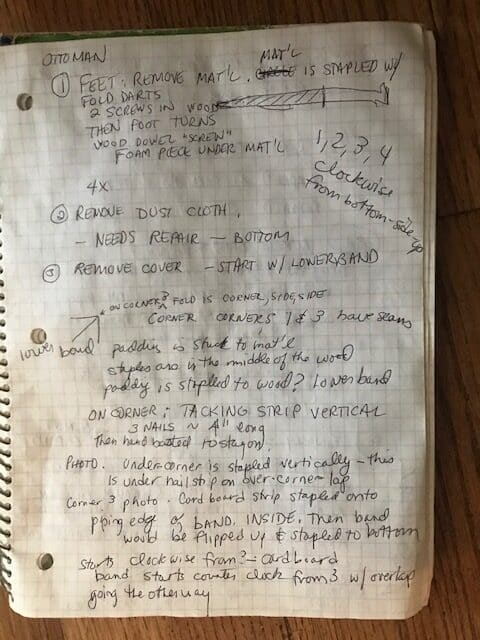 OTTOMAN
① FEET: REMOVE MAT'L. MAT'L IS STAPLED W/
FOLD DARTS
2 SCREWS IN WOOD
THEN FOOT TURNS
WOOD DOWEL "SCREW"
FOAM PIECE UNDER MAT'L
1, 2, 3, 4
clockwise
from bottom-side-up
4X
② REMOVE DUST CLOTH.
- NEEDS REPAIR - BOTTOM
③ REMOVE COVER - START W/ LOWER BAND
ON CORNER 3 FOLD IS CORNER, SIDE, SIDE
CORNER CORNERS 1 & 3 have seams
lower band
padding is stuck to mat'l
staples are in the middle of the wood
padding is stapled to wood? Lower band
ON CORNER: TACKING STRIP VERTICAL
3 NAILS ~ 4" long
Then hand basted to stay on.
PHOTO. Under-corner is stapled vertically - this
is under nail strip on over-corner lap
Corner 3 photo. Cardboard strip stapled onto
piping edge of BAND, INSIDE. Then band
would be flipped up & stapled to bottom
Starts clockwise from? = cardboard
band starts counter clock from 3 w/ overlap
going the other way